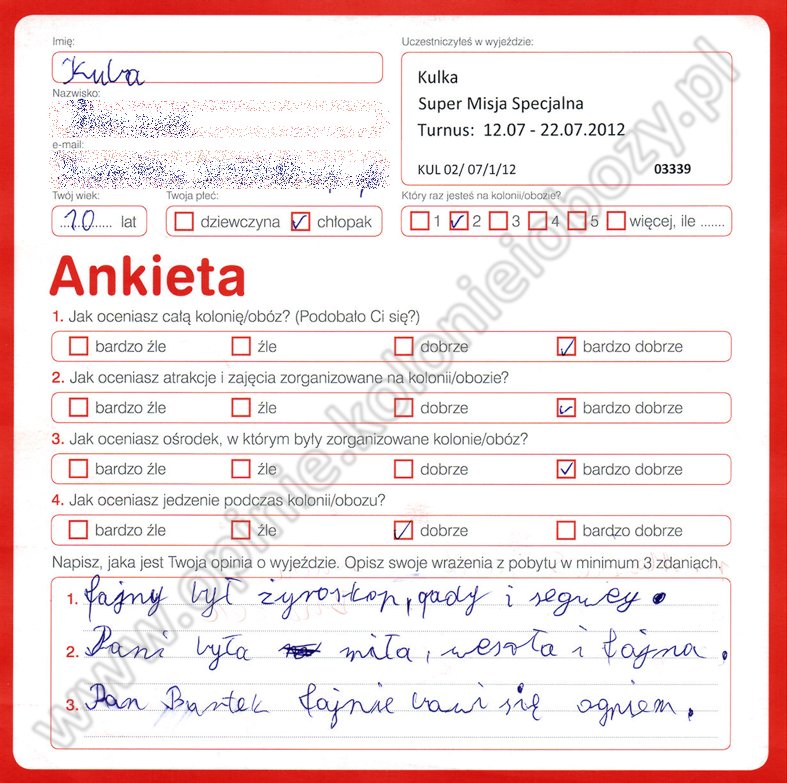 Imię:
Kuba
Uczestniczyłeś w wyjeździe:
Kulka
Super Misja Specjalna
Turnus: 12.07 - 22.07.2012
KUL 02/ 07/1/12 03339
Nazwisko:
e-mail:
Twój wiek:
10 lat
Twoja płeć:
dziewczyna chłopak
Który raz jesteś na kolonii/obozie?
1 2 3 4 5 więcej, ile .......
Ankieta
1. Jak oceniasz całą kolonię/obóz? (Podobało Ci się?)
bardzo źle źle dobrze bardzo dobrze
2. Jak oceniasz atrakcje i zajęcia zorganizowane na kolonii/obozie?
bardzo źle źle dobrze bardzo dobrze
3. Jak oceniasz ośrodek, w którym były zorganizowane kolonie/obóz?
bardzo źle źle dobrze bardzo dobrze
4. Jak oceniasz jedzenie podczas kolonii/obozu?
bardzo źle źle dobrze bardzo dobrze
Napisz, jaka jest Twoja opinia o wyjeździe. Opisz swoje wrażenia z pobytu w minimum 3 zdaniach.
1. fajny był żyroskop, gady i segwey.
2. Pani była miła, wesoła i fajna.
3. Pan Bartek fajnie bawi się ogniem.
www.opinie.kolonieiobozy.pl